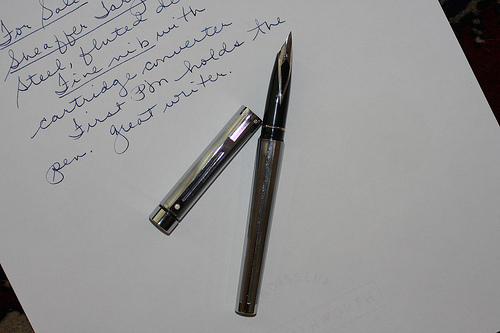 For Sale
Sheaffer Tar
Steel, fluted de
Fine nib with
cartridge converter
First Pm holds the
pen. Great writer.